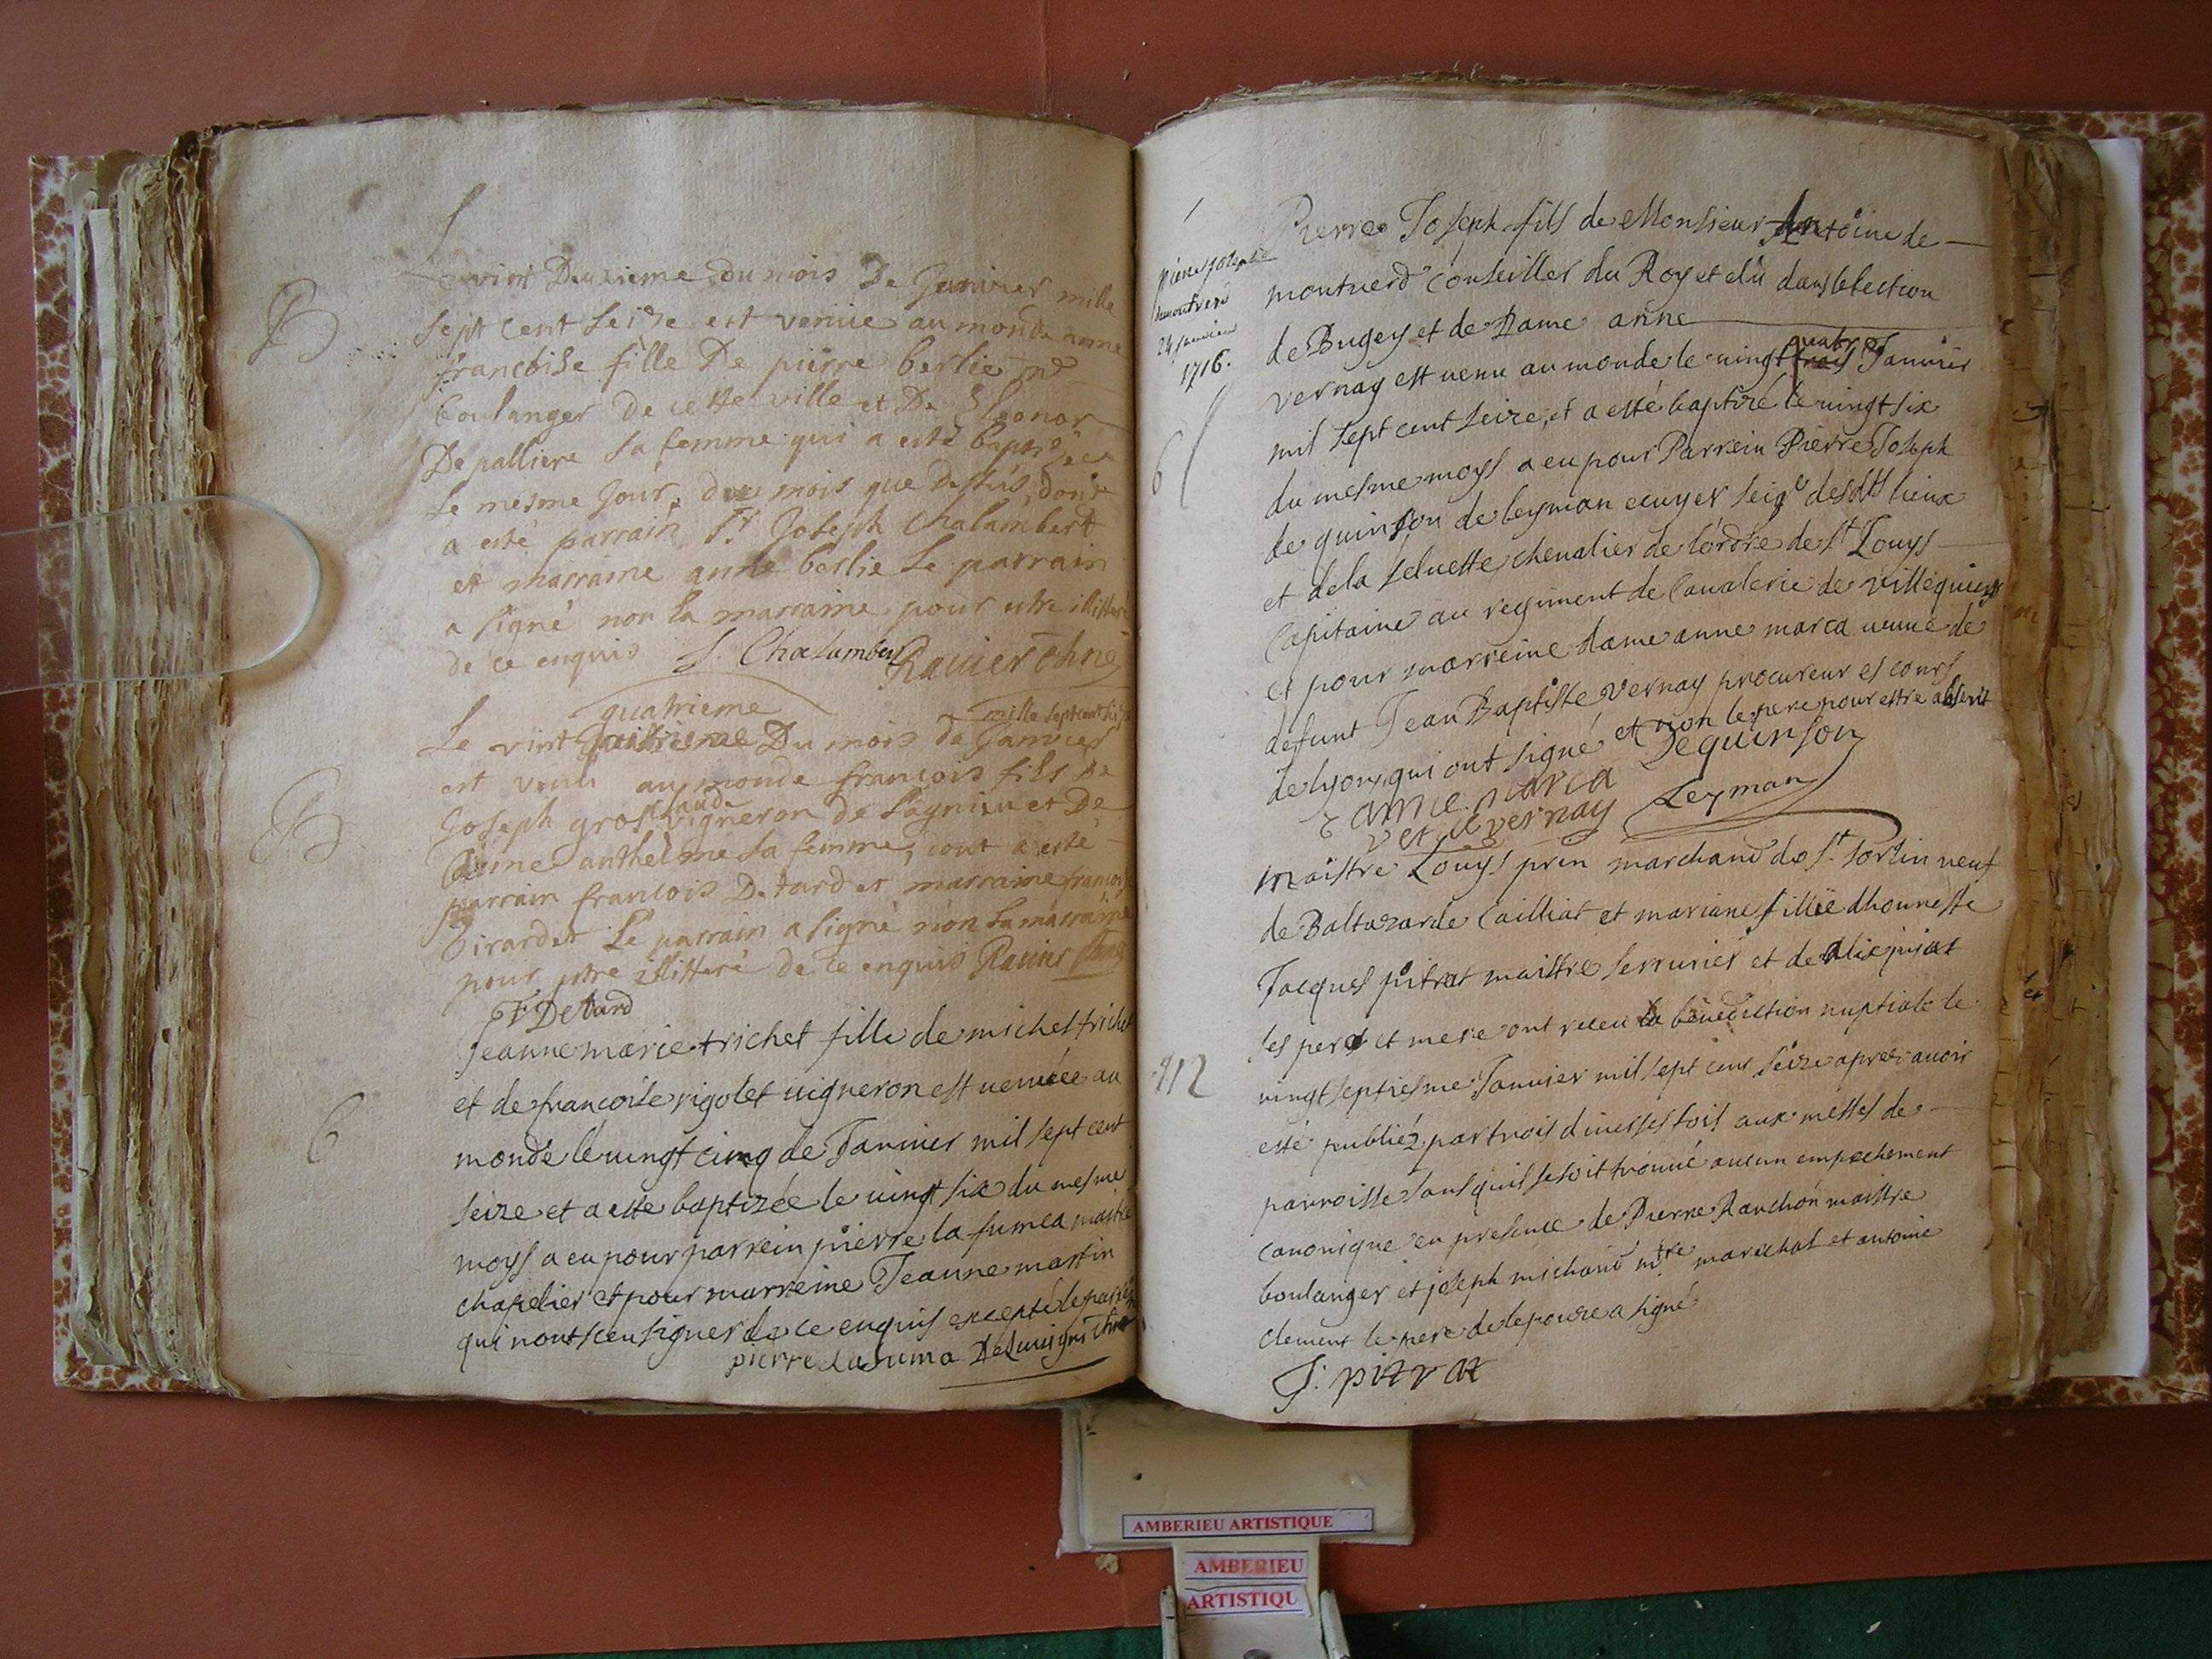 B
Le vint Deuxieme du mois De Janvier mille
sept cent seize est venüe au monde anne
francoise fille De pierre berlie me
boulanger De cette ville et De Eleonor
Depalliere sa femme qui a esté baptisée
le mesme jour, du mois que dessus, dont
a esté parrain Sr Joseph Chalambert
et marraine anne berlie le parrain
a signé non la marraine pour estre illitteré
de ce enquis J. Chalambert Ravier
B
quatrieme mille sept cent seize
Le vint Du mois de Janvier
est venu au monde francois fils de
aude
Joseph gros vigneron de Lagnieu et De
anthelme sa femme, dont a esté
parrain francois Detard et marraine francoise
Girardet Le parrain a signé non la marraine
pour estre illitteré de ce enquis Ravier
F Detard
6
Jeanne marie trichet fille de michel trichet
et de francoise rigolet vigneron est venuée au
monde le vingt cinq de Janvier mil sept cent
seize et a esté baptizée le vingt six du mesme
moys a eu pour parrein pierre la fumea maistre
chapelier et pour marreine Jeanne martin
qui n'ont sceu signer de ce enquis excepté le parrein
pierre la fuma
pierre joseph
demontverd
24 janvier
1716.
6
Pierre Joseph fils de Monsieur Antoine de
montverd Conseiller du Roy et elû dans lelection
de Bugey et de Dame anne
quatre
vernay est venu au monde le vingt trois Janvier
mil sept cent seize, et a esté baptizé le vingt six
du mesme moys a eu pour Parrein Pierre Joseph
de quinson de leyman ecuyer seigr desdts lieux
et de la seluette chevalier de lórdre de St Louys
Capitaine au regiment de Cavalerie de villequier
et pour marreine dame anne marca veuue de
defunt Jean Baptiste vernay procureur es cours
de lyon, qui ont signé et non le pere pour estre absent
anne marca Dequinson
vernay Leyman
112
maistre Louys prin marchand de St Sorlin veuf
de Baltazarde Cailliat et mariane fillie dhonneste
Jacques pitrat maistre serrurier et de
ses pere et mere ont receu la bénediction nuptiale le
vingt septiesme Janvier mil sept cent seize apres avoir
esté publiéz par trois diverses fois aux messes de
parroisse sans quil se soit trouué aucun empechement
canonique en presence de Pierre Ranchon maistre
boulanger et joseph michaud mtre maréchal et antoine
clement le pere de lepouze a signé
J. pitrat
AMBERIEU ARTISTIQUE
AMBERIEU
ARTISTIQU